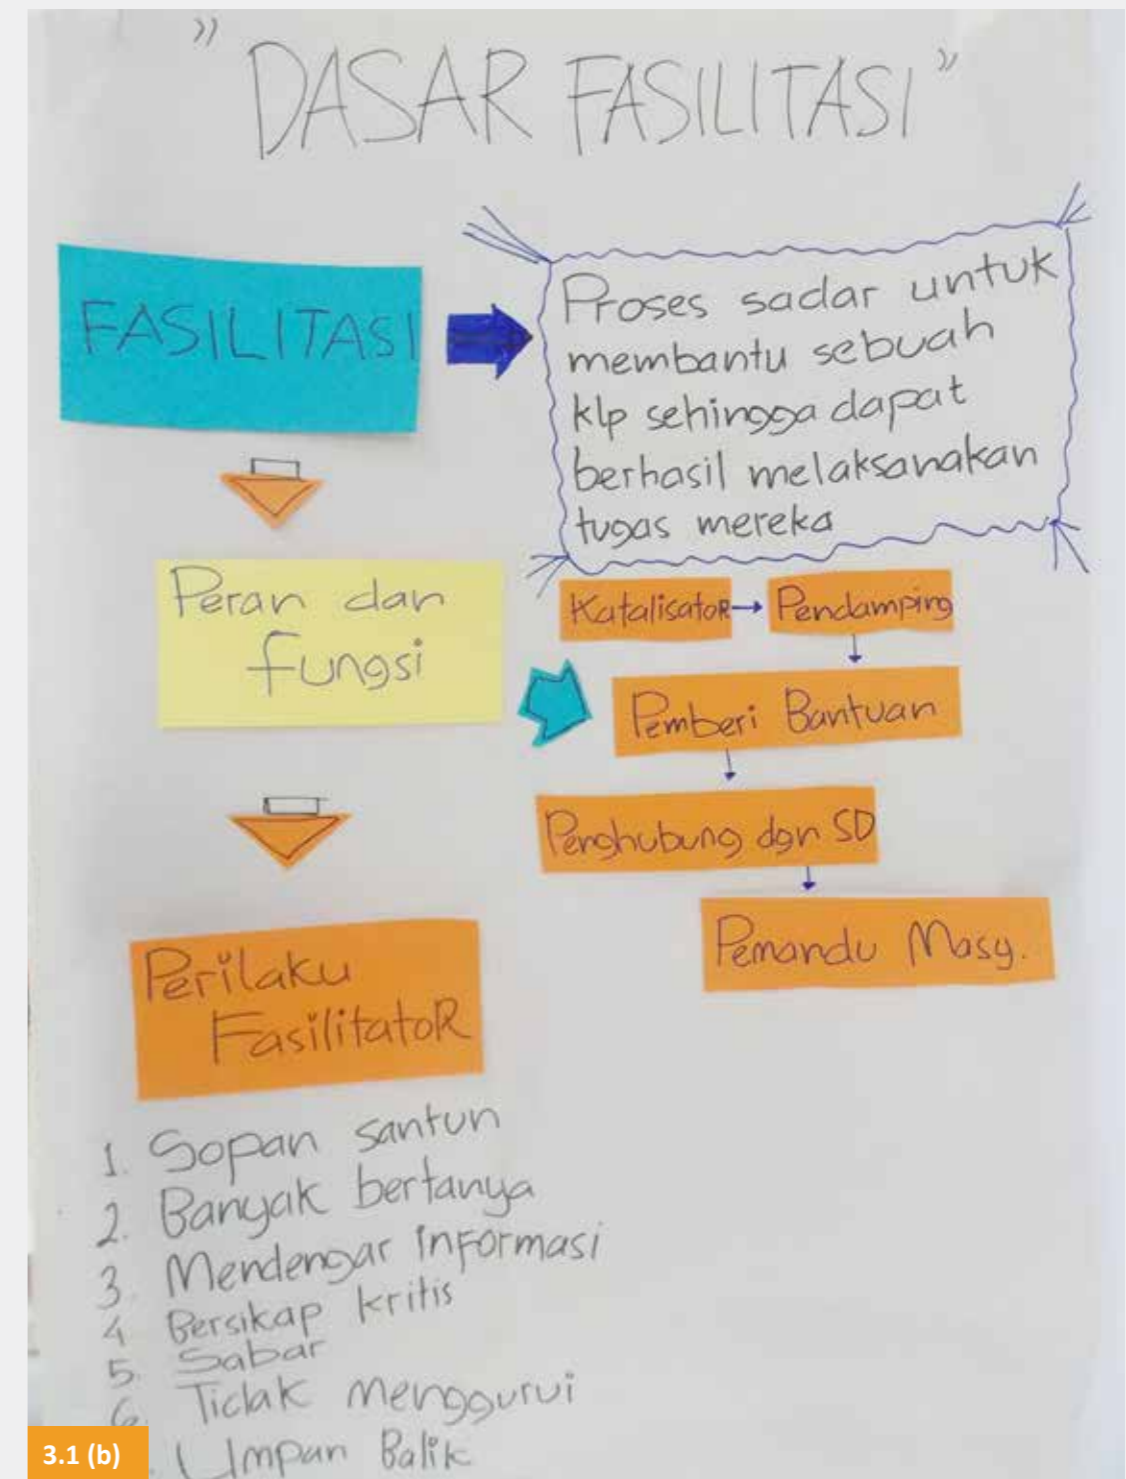 "DASAR FASILITASI"
FASILITASI
Proses sadar untuk
membantu sebuah
klp sehingga dapat
berhasil melaksanakan
tugas mereka
Peran dan
fungsi
Katalisator
Pendamping
Pemberi Bantuan
Penghubung dgn SD
Pemandu Masy.
Perilaku
Fasilitator
1. Sopan santun
2. Banyak bertanya
3. Mendengar informasi
4 Bersikap kritis
5. Sabar
6. Tidak menggurui
. Umpan Balik
3.1 (b)